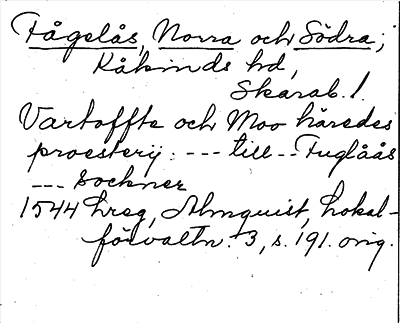 Fågelås, Norra och Södra;
Kåkinds hd,
Skarab. l.
Vartoffte och Moo häredes
proesterij: --- till -- Fuglåås
--- sockner
1544 hreg, Almquist, Lokal-
förvaltn. 3, s. 191. orig.